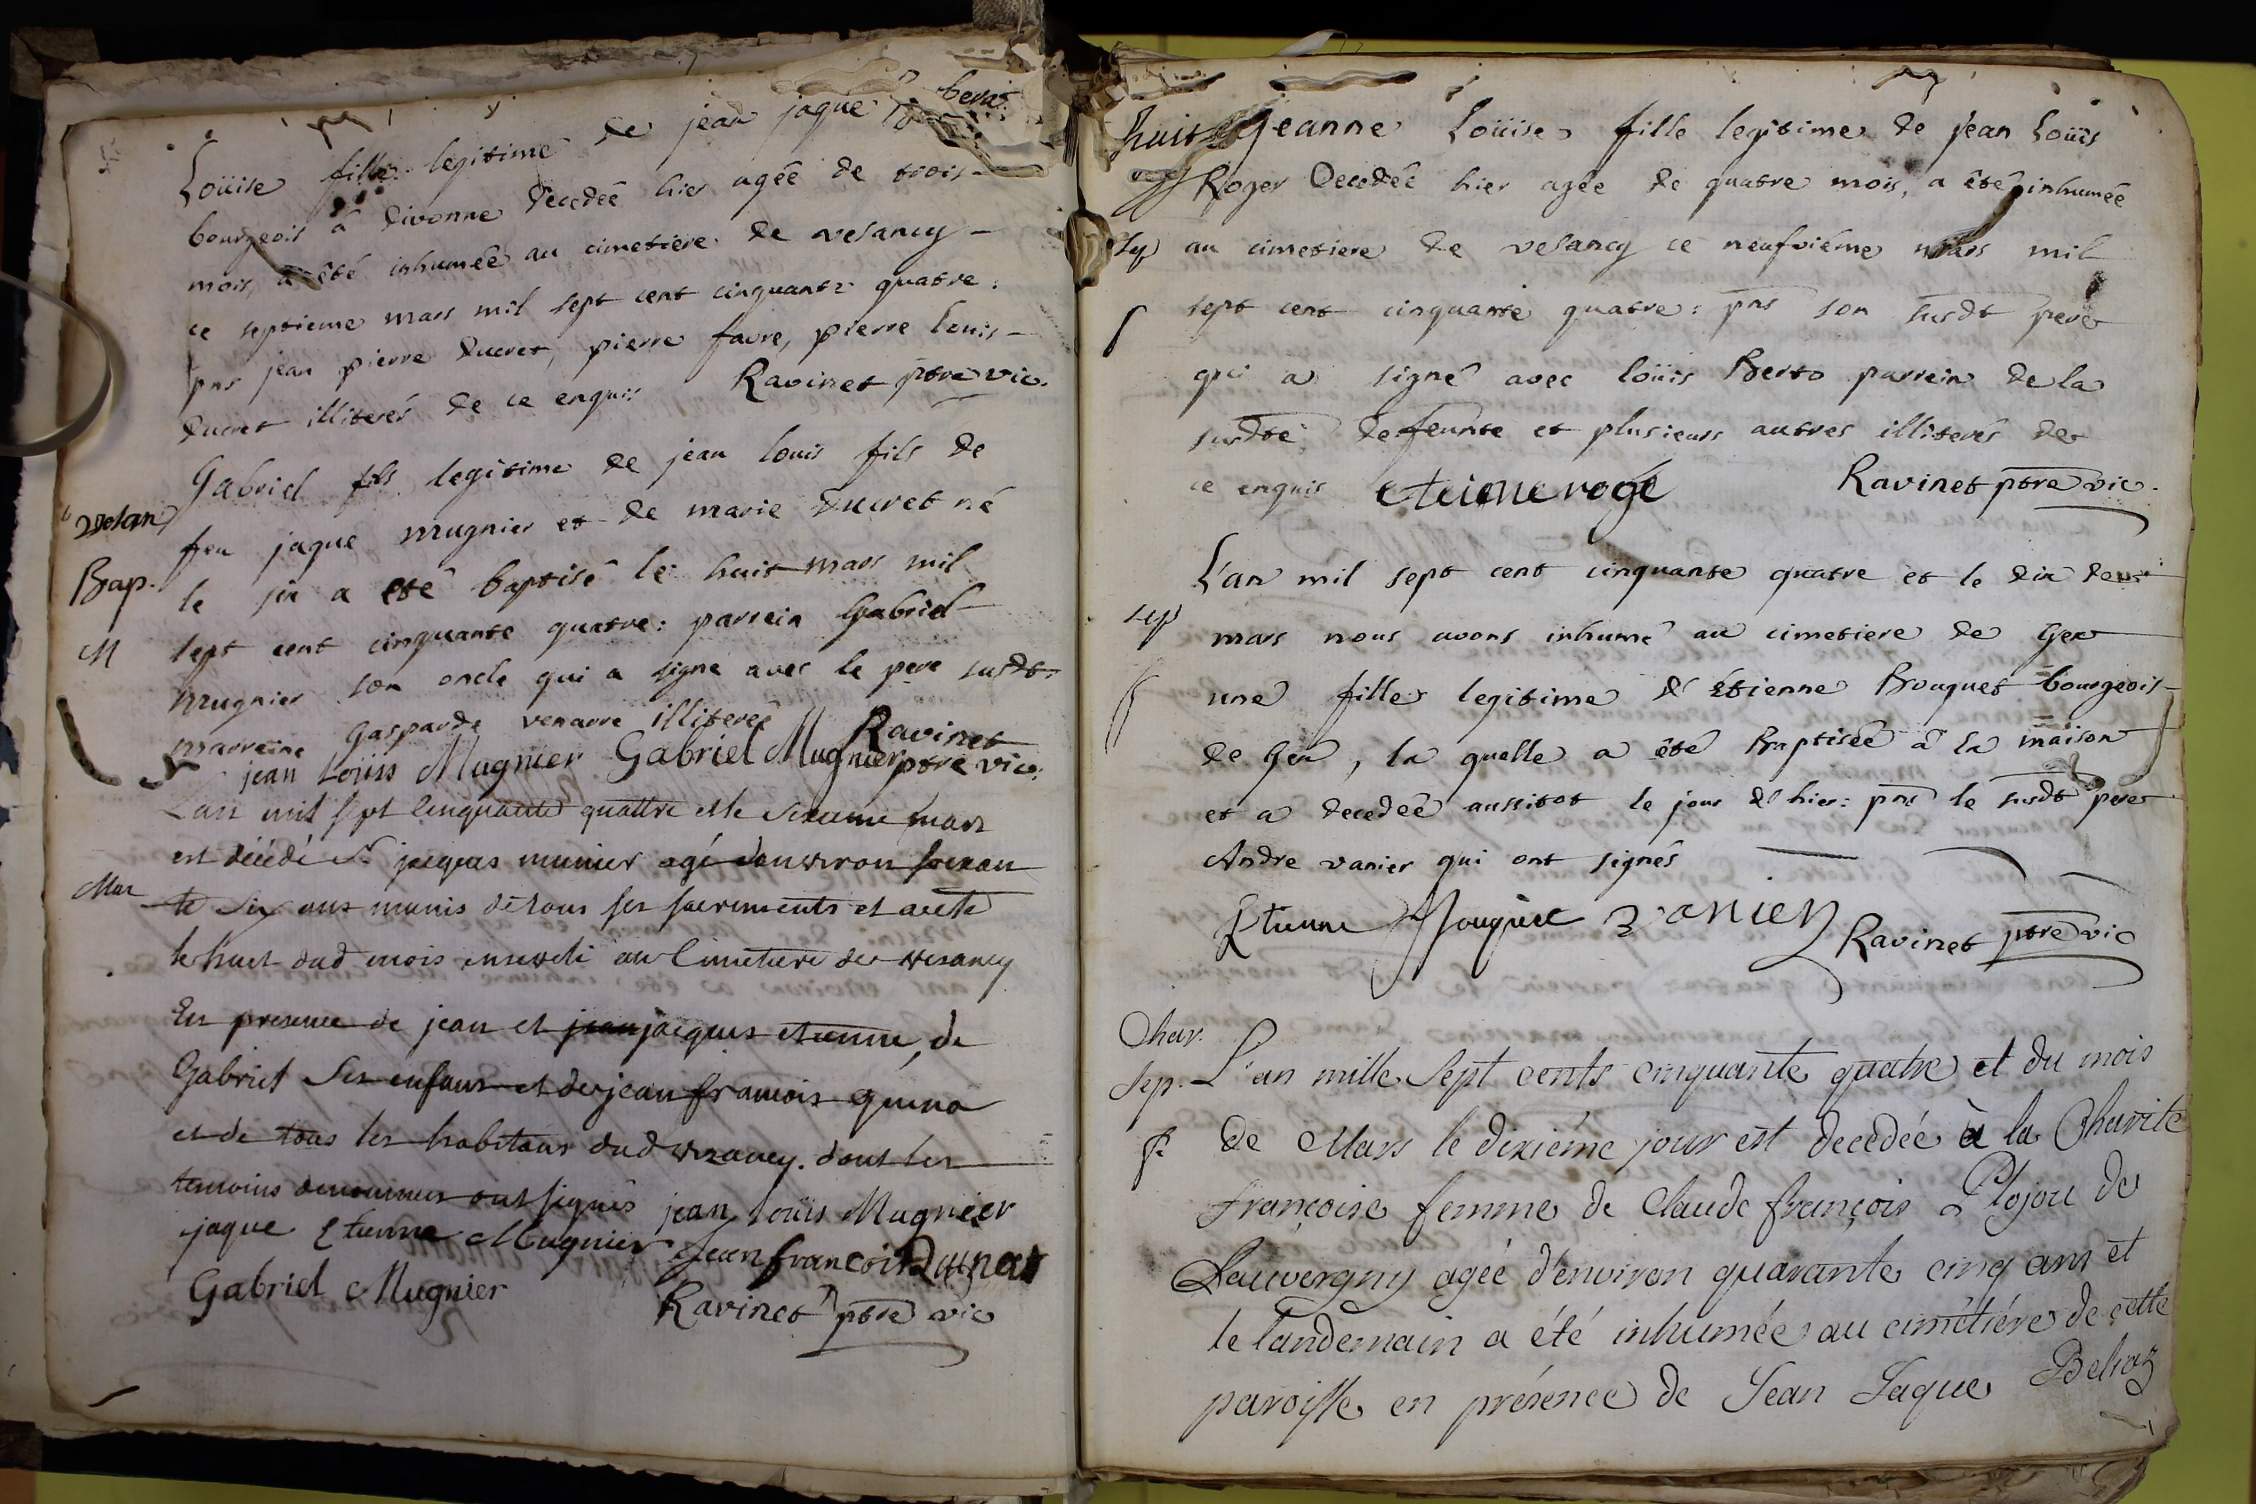 Loüise fille legitime de jean jaque
bourgeois â divonne decedéé hier agéé de trois
mois, a êté inhuméé au cimetiere de vesancy
ce septieme mars mil sept cent cinquante quatre:
pns jean pierre ducret, pierre favre, pierre louis
ducret illiterés de ce enquis Ravinet ptre vic.
vesan
Gabriel fils legitime de jean louis fils de
feu jaque mugnier et de marie ducret né
Bap.
le six a eté baptisé le huit mars mil
M
sept cent cinquante quatre: parrein Gabriel
mugnier son oncle qui a signé avec le pere susdt
marreine Gasparde venarre illitereé Ravinet
jean Loüiss Mugnier Gabriel Mugnier ptre vic:
L'an mil sept cinquante quattre et le sixieme mars
est décédé Sr jacques munier agé d'anviron soixan
Mar
te six ans munis de tous ses sacrements et a eté
le huit dud mois enseveli au Cimetiere de vesancy
En presence de jean et jean jacques etienne, de
Gabriel ses enfans et de jean francois
et de tous les habitans dud vezancy. dont les
temoins denommes ont signés jean Loüis Mugnier
jaque Etienne Mugnier Jean francois
Gabriel Mugnier Ravinet ptre vic
huit Jeanne Loüise fille legitime de jean Loüis
Roger Decedéé hier agée de quatre mois, a êté inhuméé
Sep
au cimetiere de vesancy ce neufviéme mars mil
sept cent cinquante quatre: pns son susdt pere
f
qui a signé avec loüis Berto parrein de la
susdte defeunte et plusieurs autres illiterés de
ce enquis etiene rogé Ravinet ptre vic.
L'an mil sept cent cinquante quatre et le dix deux
sep
mars nous avons inhumé au cimetiere de Gex
f
une fille legitime d'Étienne Bouquet bourgeois
de Gex, la quelle a êté Baptisée â la maison
et a decedéé aussitot le jour d'hier: pns le susdt pere
Andre vanier qui ont signés
Etienne Bouquet vanier Ravinet ptre vic
Char.
Sep. L'an mille Sept cents cinquante quatre et du mois
f. de Mars le dixiéme jour est decedée à la Charité
françoise femme de Claude françois Plojou de
Sauvergny agéé d'environ quarante cinq ans et
le landemain a été inhumée au cimétiére de cette
paroisse en présence de Jean Jaque